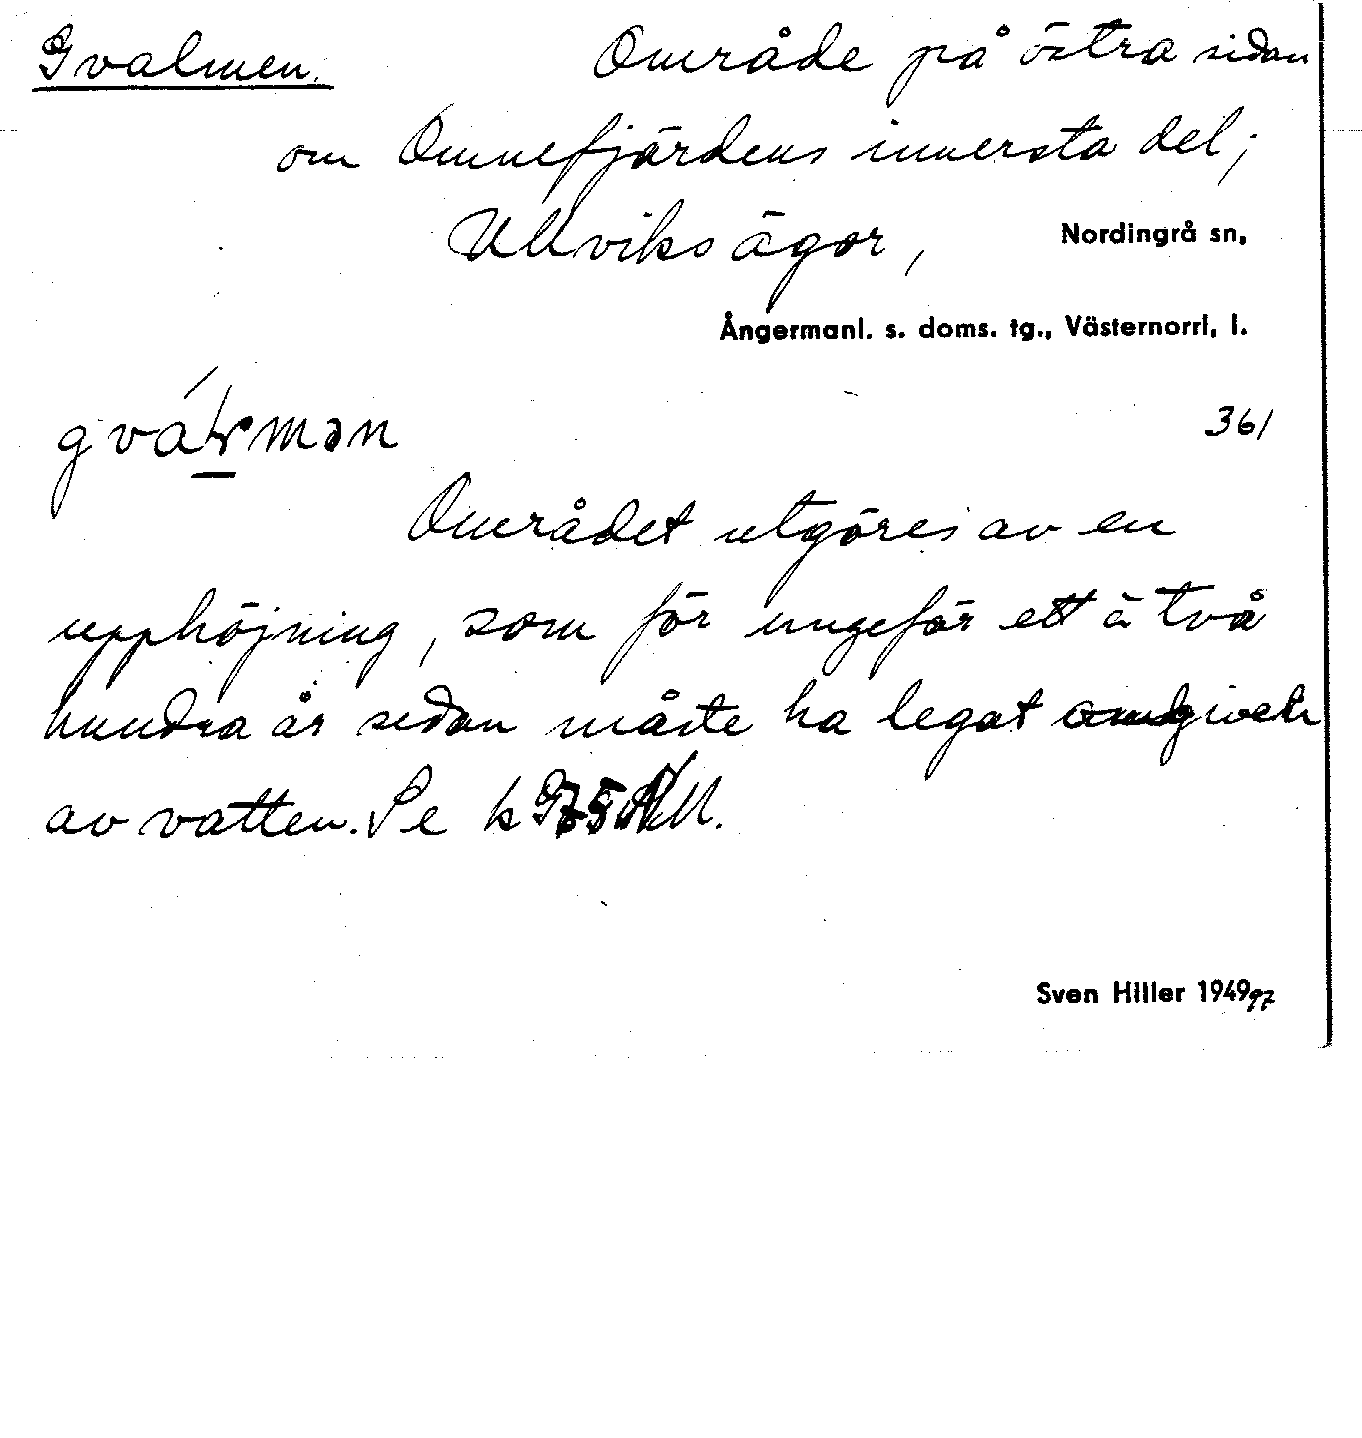 Gvalmen. Område på östra sidan
om Omnefjärdens innersta del;
Ullviks ägor, Nordingrå sn,
Ångermanl. s. doms. tg., Västernorrl. l.
361
Området utgöres av en
upphöjning, som för ungefär ett à två
hundra år sedan måste ha legat omgivet
av vatten. Se k
Sven Hiller 1949 97